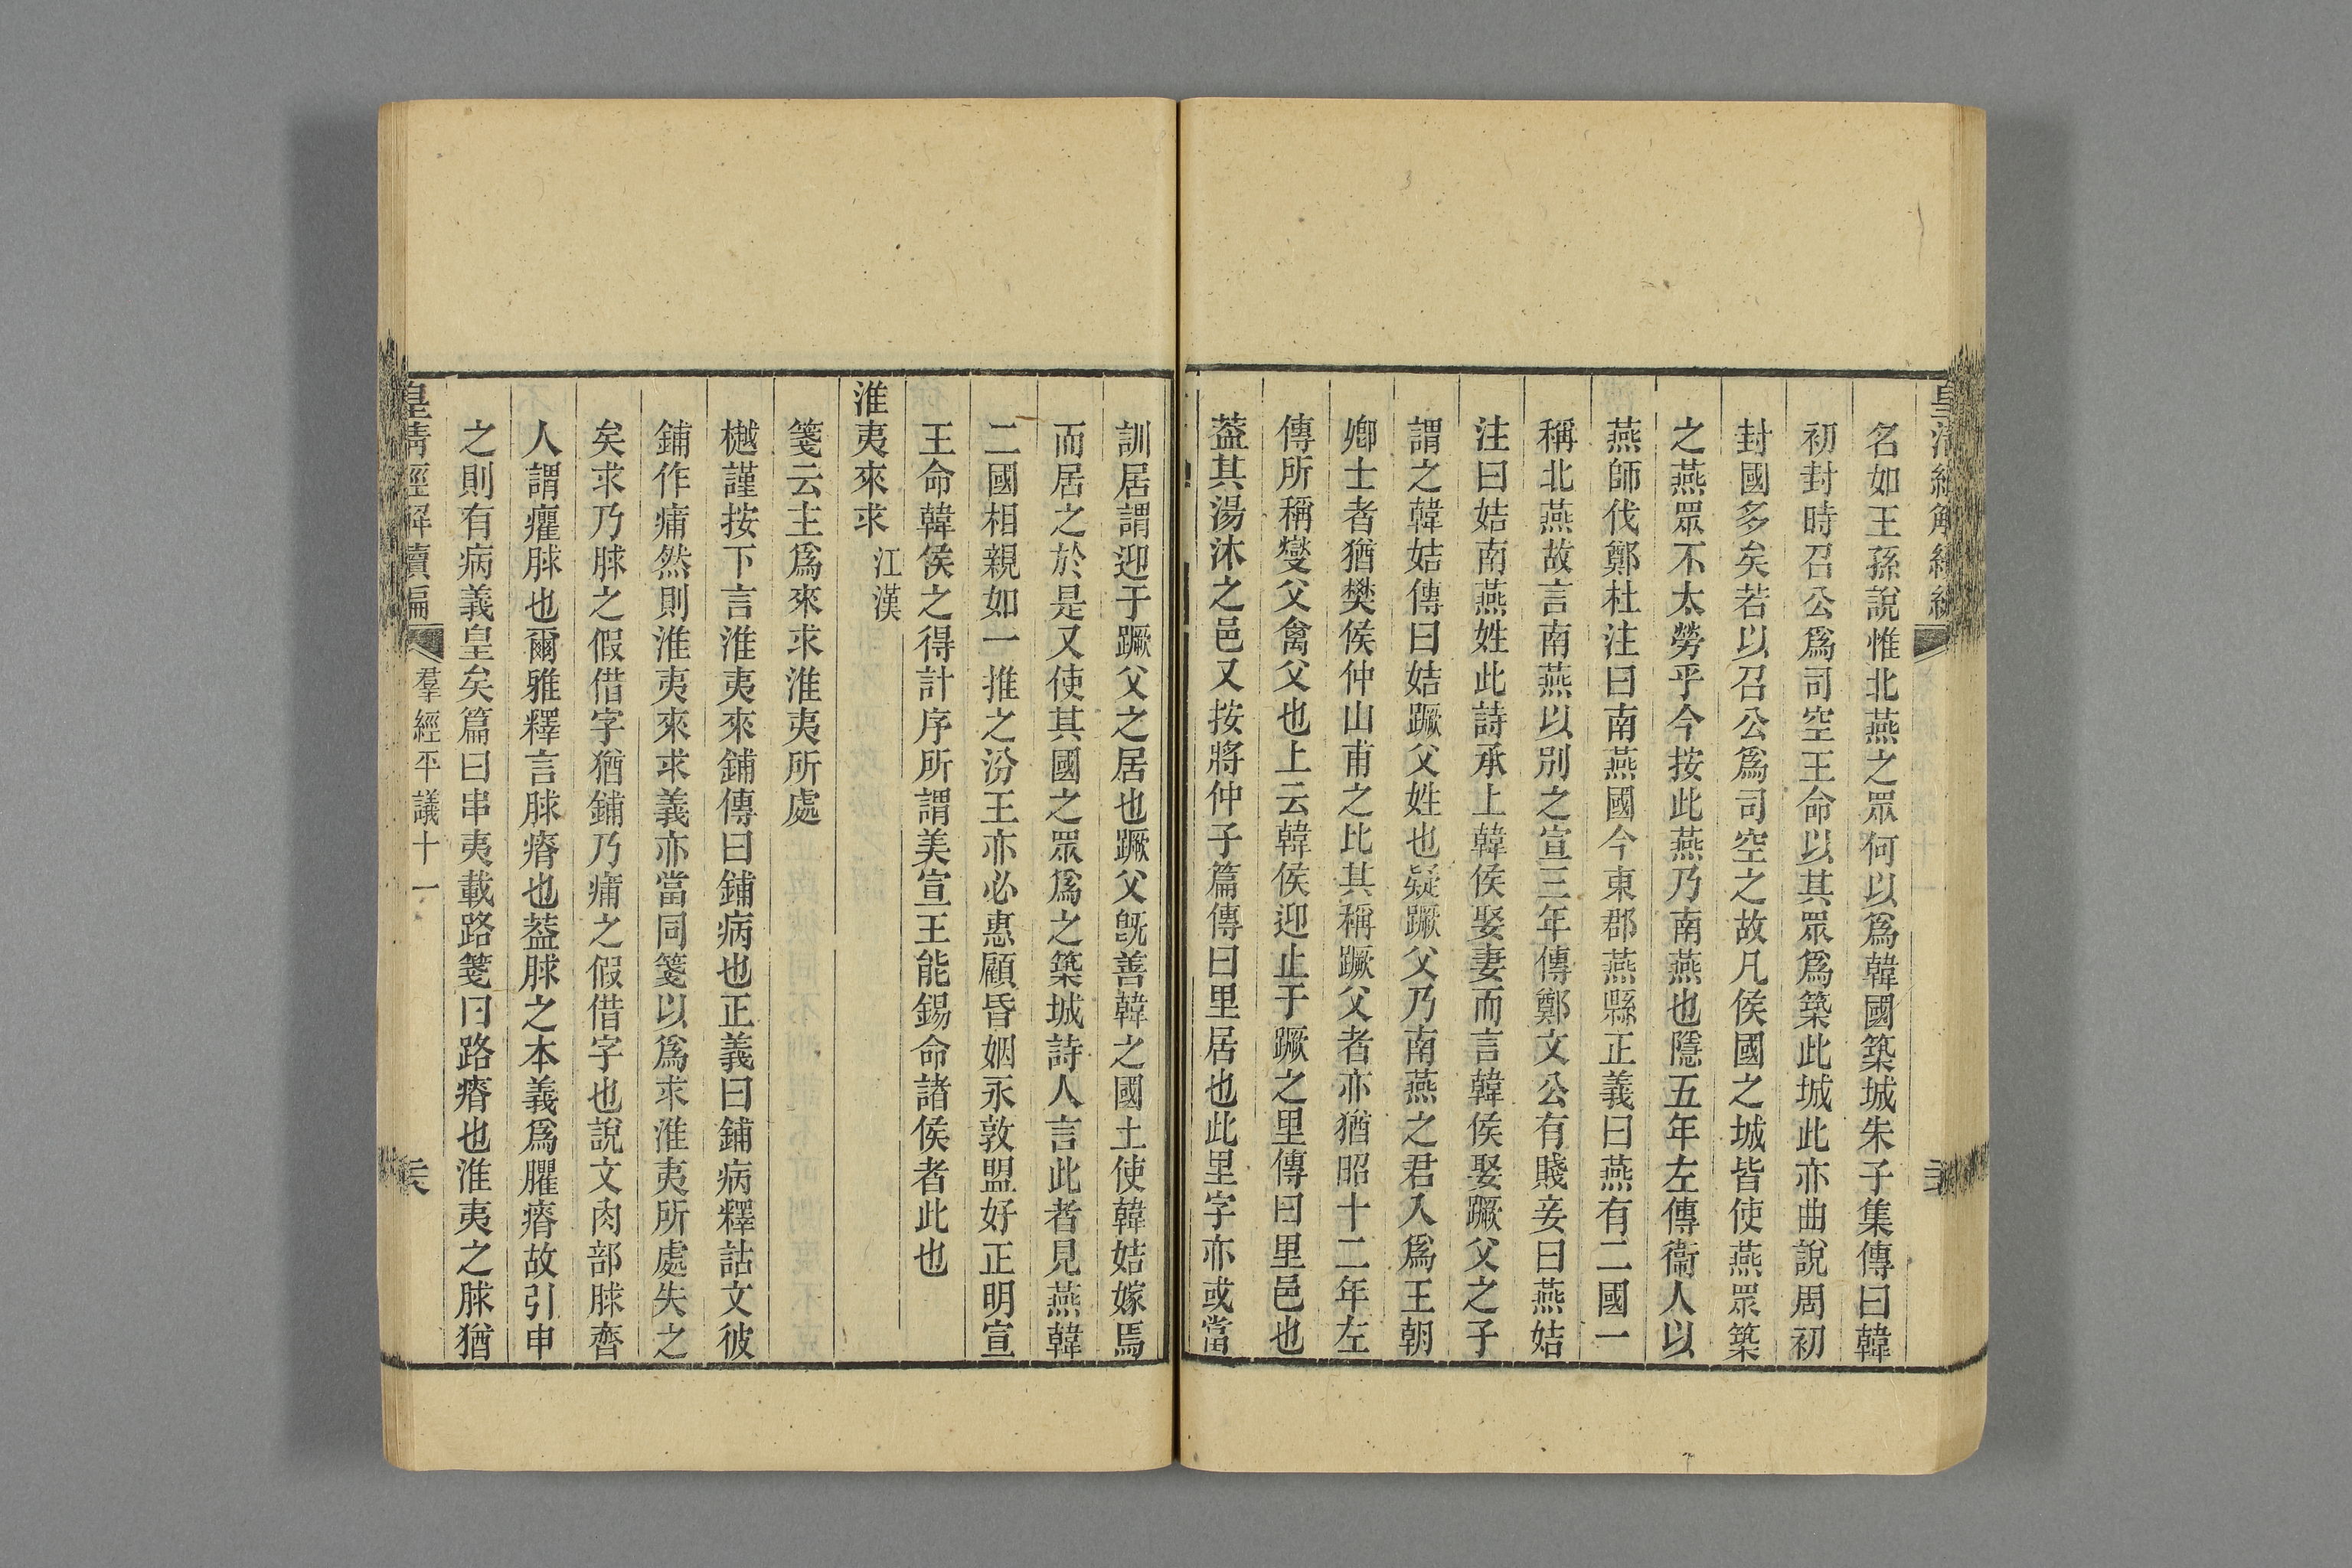 名如王孫說惟北燕之眾何以爲韓國築城朱子集傳曰韓
初封時召公爲司空王命以其眾爲築此城此亦曲說周初
封國多矣若以召公爲司空之故凡侯國之城皆使燕眾築
之燕眾不太勞乎今按此燕乃南燕也隱五年左傳衞人以
燕師伐鄭杜注曰南燕國今東郡燕縣正義曰燕有二國一
稱北燕故言南燕以別之宣三年傳鄭文公有賤妾曰燕姞
注曰姞南燕姓此詩承上韓侯娶妻而言韓侯娶蹶父之子
謂之韓姞傳曰姞蹶父姓也疑蹶父乃南燕之君入爲王朝
卿士者猶樊侯仲山甫之比其稱蹶父者亦猶昭十二年左
傳所稱燮父禽父也上云韓侯迎止于蹶之里傳曰里邑也
蓋其湯沐之邑又按將仲子篇傳曰里居也此里字亦或當
訓居謂迎于蹶父之居也蹶父旣善韓之國土使韓姞嫁焉
而居之於是又使其國之眾爲之築城詩人言此者見燕韓
二國相親如一推之汾王亦必惠顧昏姻永敦盟好正明宣
王命韓侯之得計序所謂美宣王能錫命諸侯者此也
淮夷來求 江漢
箋云主爲來求淮夷所處
樾謹按下言淮夷來鋪傳曰鋪病也正義曰鋪病釋詁文彼
鋪作痡然則淮夷來求義亦當同箋以爲求淮夷所處失之
矣求乃脙之假借字猶鋪乃痡之假借字也說文肉部脙齊
人謂癯脙也爾雅釋言脙瘠也蓋脙之本義爲臞瘠故引申
之則有病義皇矣篇曰串夷載路箋曰路瘠也淮夷之脙猶
皇清經解續編 羣經平議十一